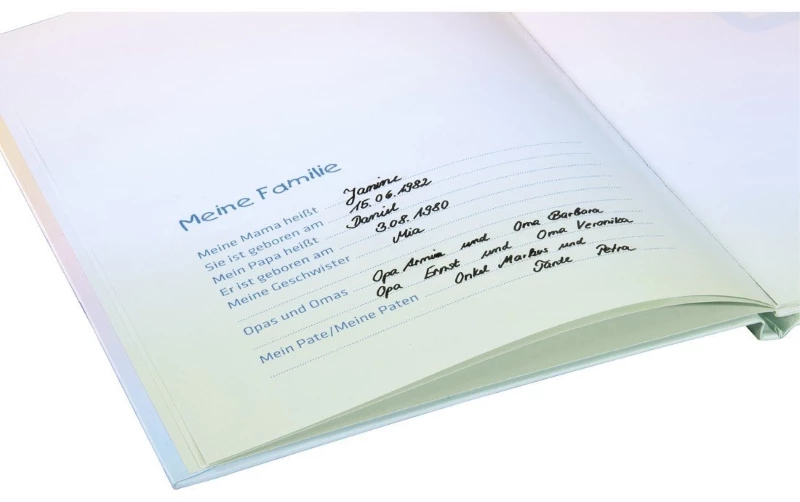 Meine Familie
Meine Mama heißt Janine
Sie ist geboren am 15.06.1982
Mein Papa heißt Daniel
Er ist geboren am 3.08.1980
Meine Geschwister Mia
Opas und Omas Opa Armin und Oma Barbara
Opa Ernst und Oma Veronika
Mein Pate/Meine Paten Onkel Markus und
Tante Petra